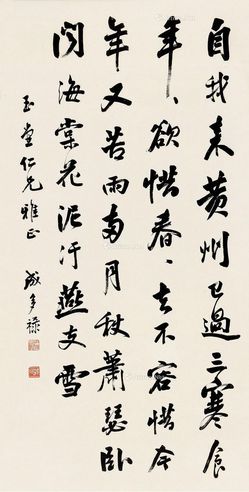 自我来黄州已過三寒食
年、欲惜春、去不容惜今
年又苦雨兩月秋蕭瑟卧
聞海棠花泥汙燕支雪
玉堂仁兄雅正
成多祿